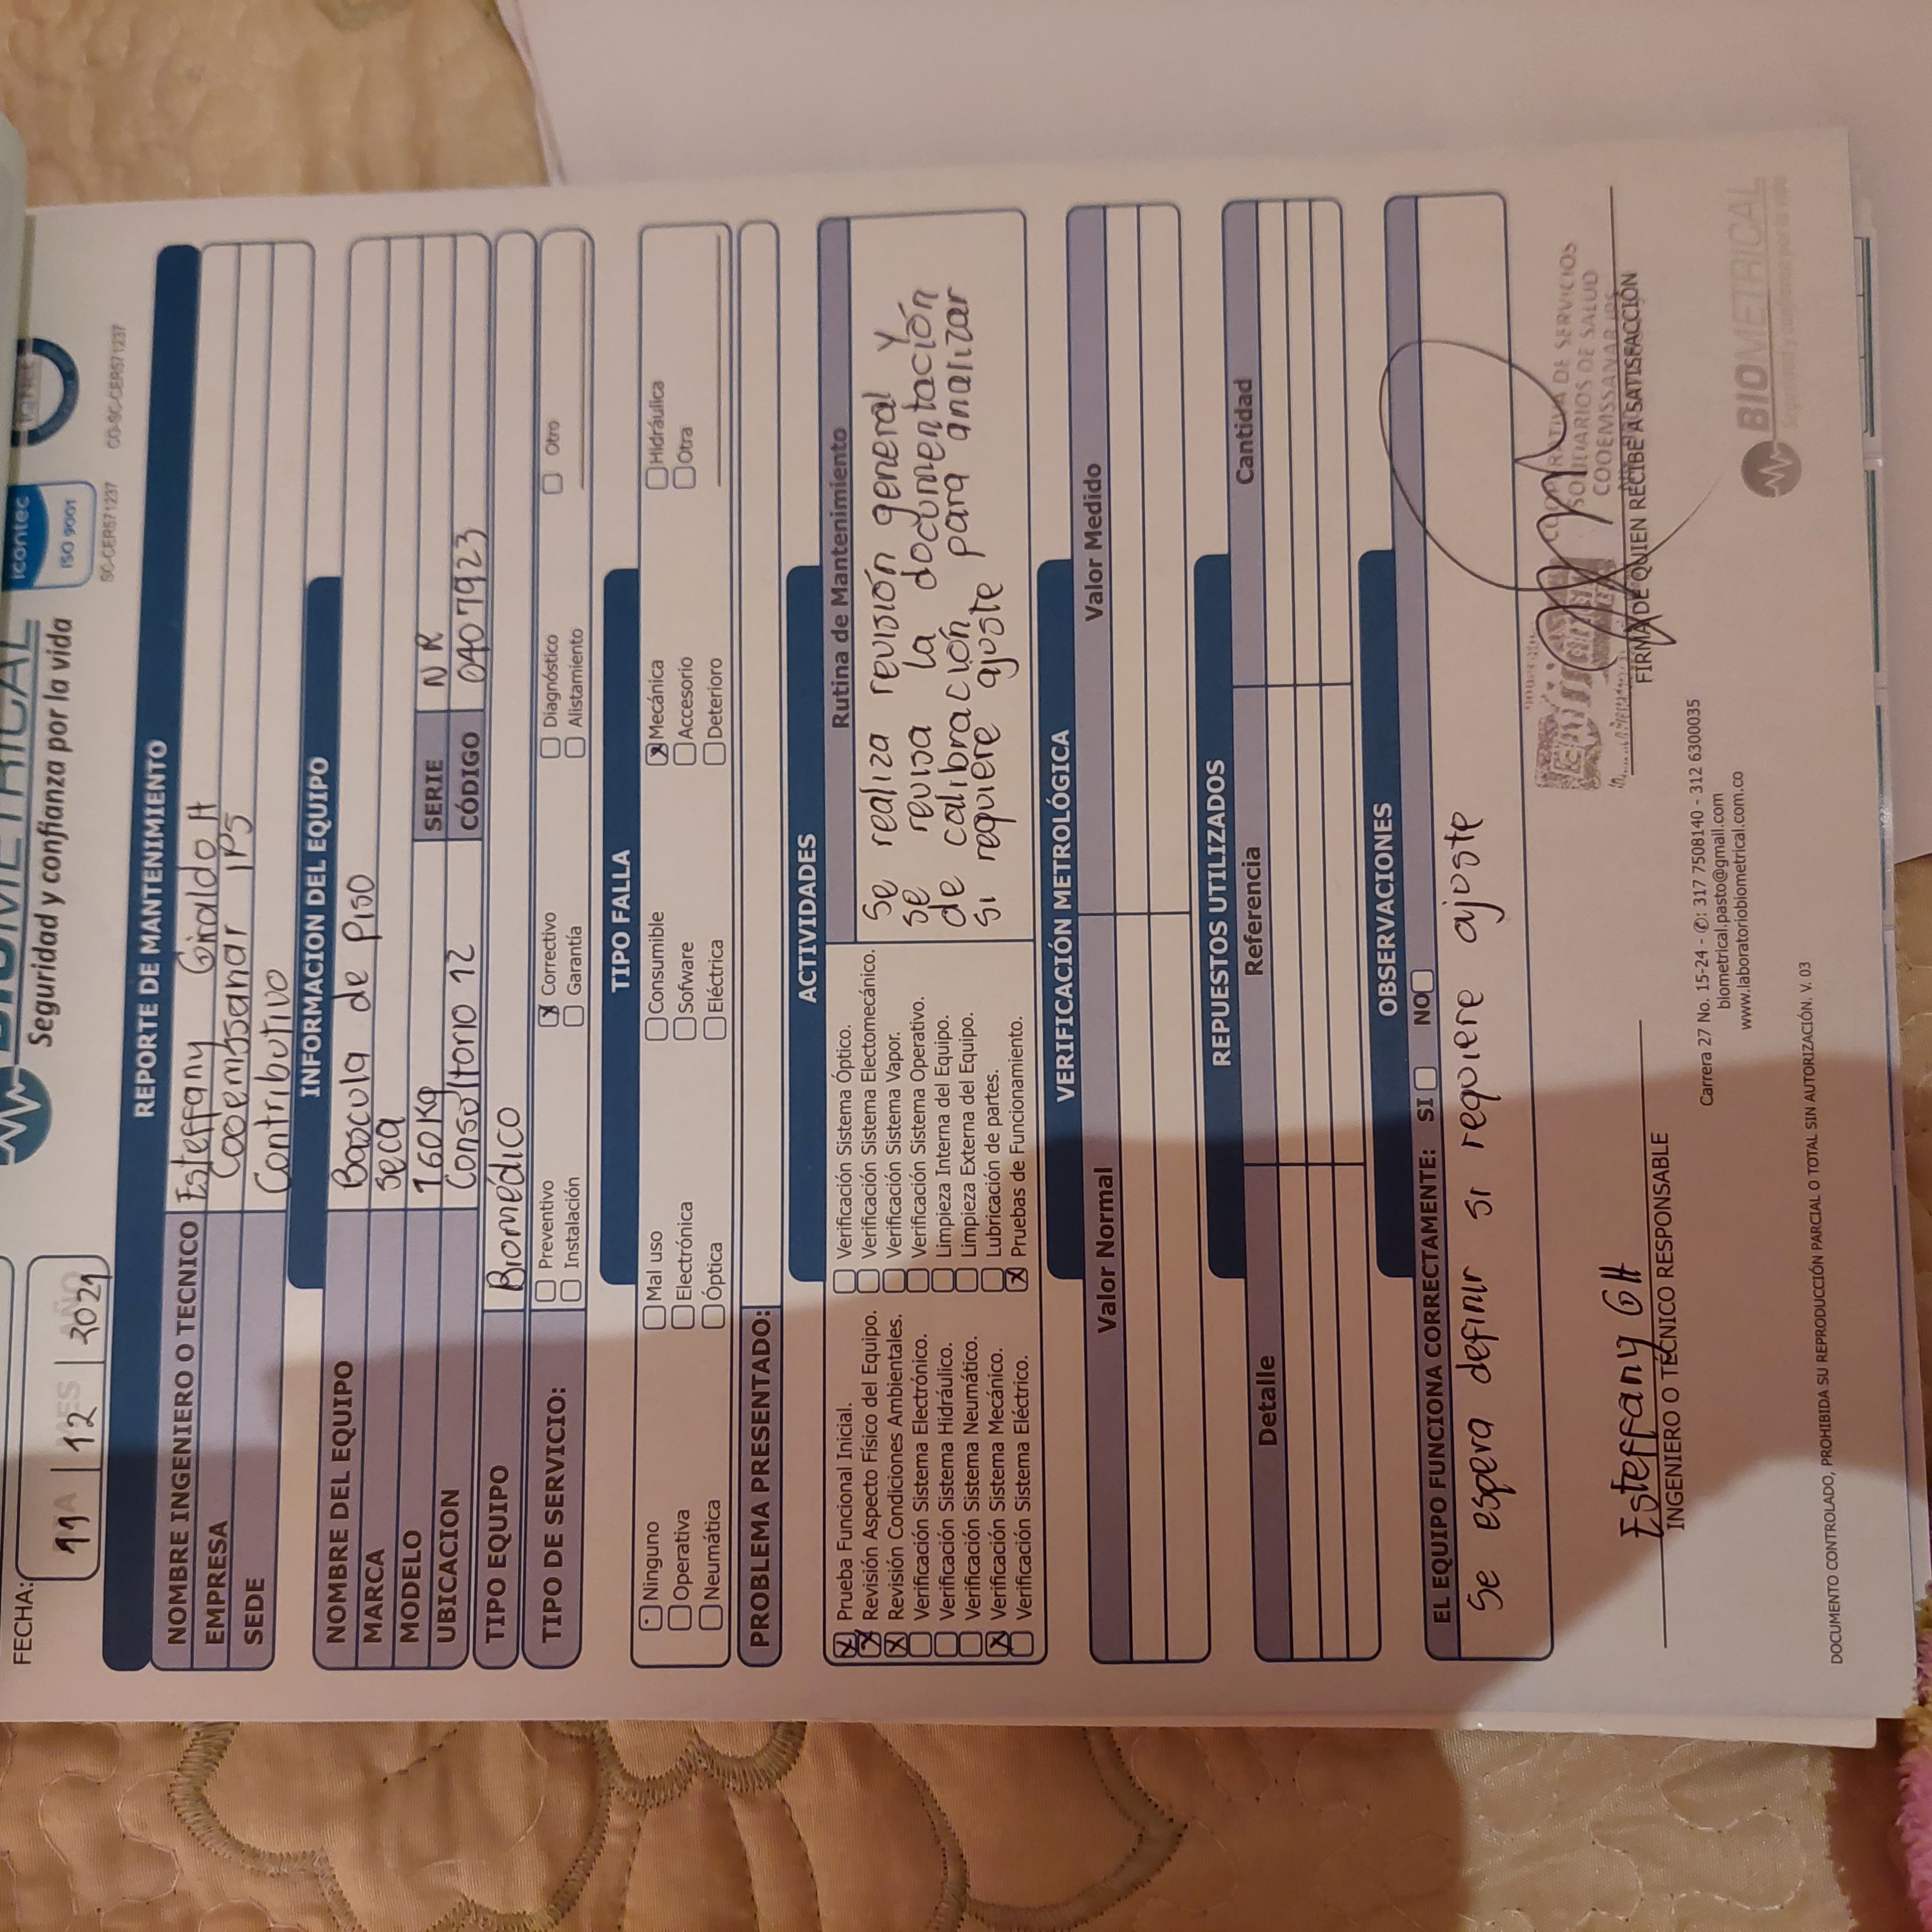 BIOMETRICAL
Seguridad y confianza por la vida
icontec
ISO 9001
IQNET
SC-CER571237
CO-SC-CER571237
FECHA:
11 | 12 | 2021
REPORTE DE MANTENIMIENTO
NOMBRE INGENIERO O TECNICO Esteffany Giraldo H
EMPRESA Cooemssanar IPS
SEDE Contributivo
INFORMACION DEL EQUIPO
NOMBRE DEL EQUIPO Bascula de Piso
MARCA seca
MODELO 160Kg SERIE N R
UBICACION Consultorio 12 CÓDIGO 0407923
TIPO EQUIPO Biomédico
TIPO DE SERVICIO: Preventivo X Correctivo Diagnóstico Otro
Instalación Garantía Alistamiento
TIPO FALLA
Ninguno Mal uso Consumible X Mecánica Hidráulica
Operativa Electrónica Sofware Accesorio Otra
Neumática Óptica Eléctrica Deterioro
PROBLEMA PRESENTADO:
ACTIVIDADES
X Prueba Funcional Inicial.
X Revisión Aspecto Físico del Equipo.
X Revisión Condiciones Ambientales.
Verificación Sistema Electrónico.
Verificación Sistema Hidráulico.
Verificación Sistema Neumático.
X Verificación Sistema Mecánico.
Verificación Sistema Eléctrico.
Verificación Sistema Óptico.
Verificación Sistema Electomecánico.
Verificación Sistema Vapor.
Verificación Sistema Operativo.
Limpieza Interna del Equipo.
Limpieza Externa del Equipo.
Lubricación de partes.
X Pruebas de Funcionamiento.
Rutina de Mantenimiento
Se realiza revisión general y
se revisa la documentación
de calibración para analizar
si requiere ajuste
VERIFICACIÓN METROLÓGICA
Valor Normal Valor Medido
REPUESTOS UTILIZADOS
Detalle Referencia Cantidad
OBSERVACIONES
EL EQUIPO FUNCIONA CORRECTAMENTE: SI NO
Se espera definir si requiere ajuste
COOPERATIVA DE SERVICIOS
SOLIDARIOS DE SALUD
COOEMSSANAR IPS
Esteffany GH
INGENIERO O TECNICO RESPONSABLE
FIRMA DE QUIEN RECIBE A SATISFACCIÓN
Carrera 27 No. 15-24 - ✆: 317 7508140 - 312 6300035
biometrical.pasto@gmail.com
www.laboratoriobiometrical.com.co
BIOMETRICAL
Seguridad y confianza por la vida
DOCUMENTO CONTROLADO, PROHIBIDA SU REPRODUCCIÓN PARCIAL O TOTAL SIN AUTORIZACIÓN. V. 03